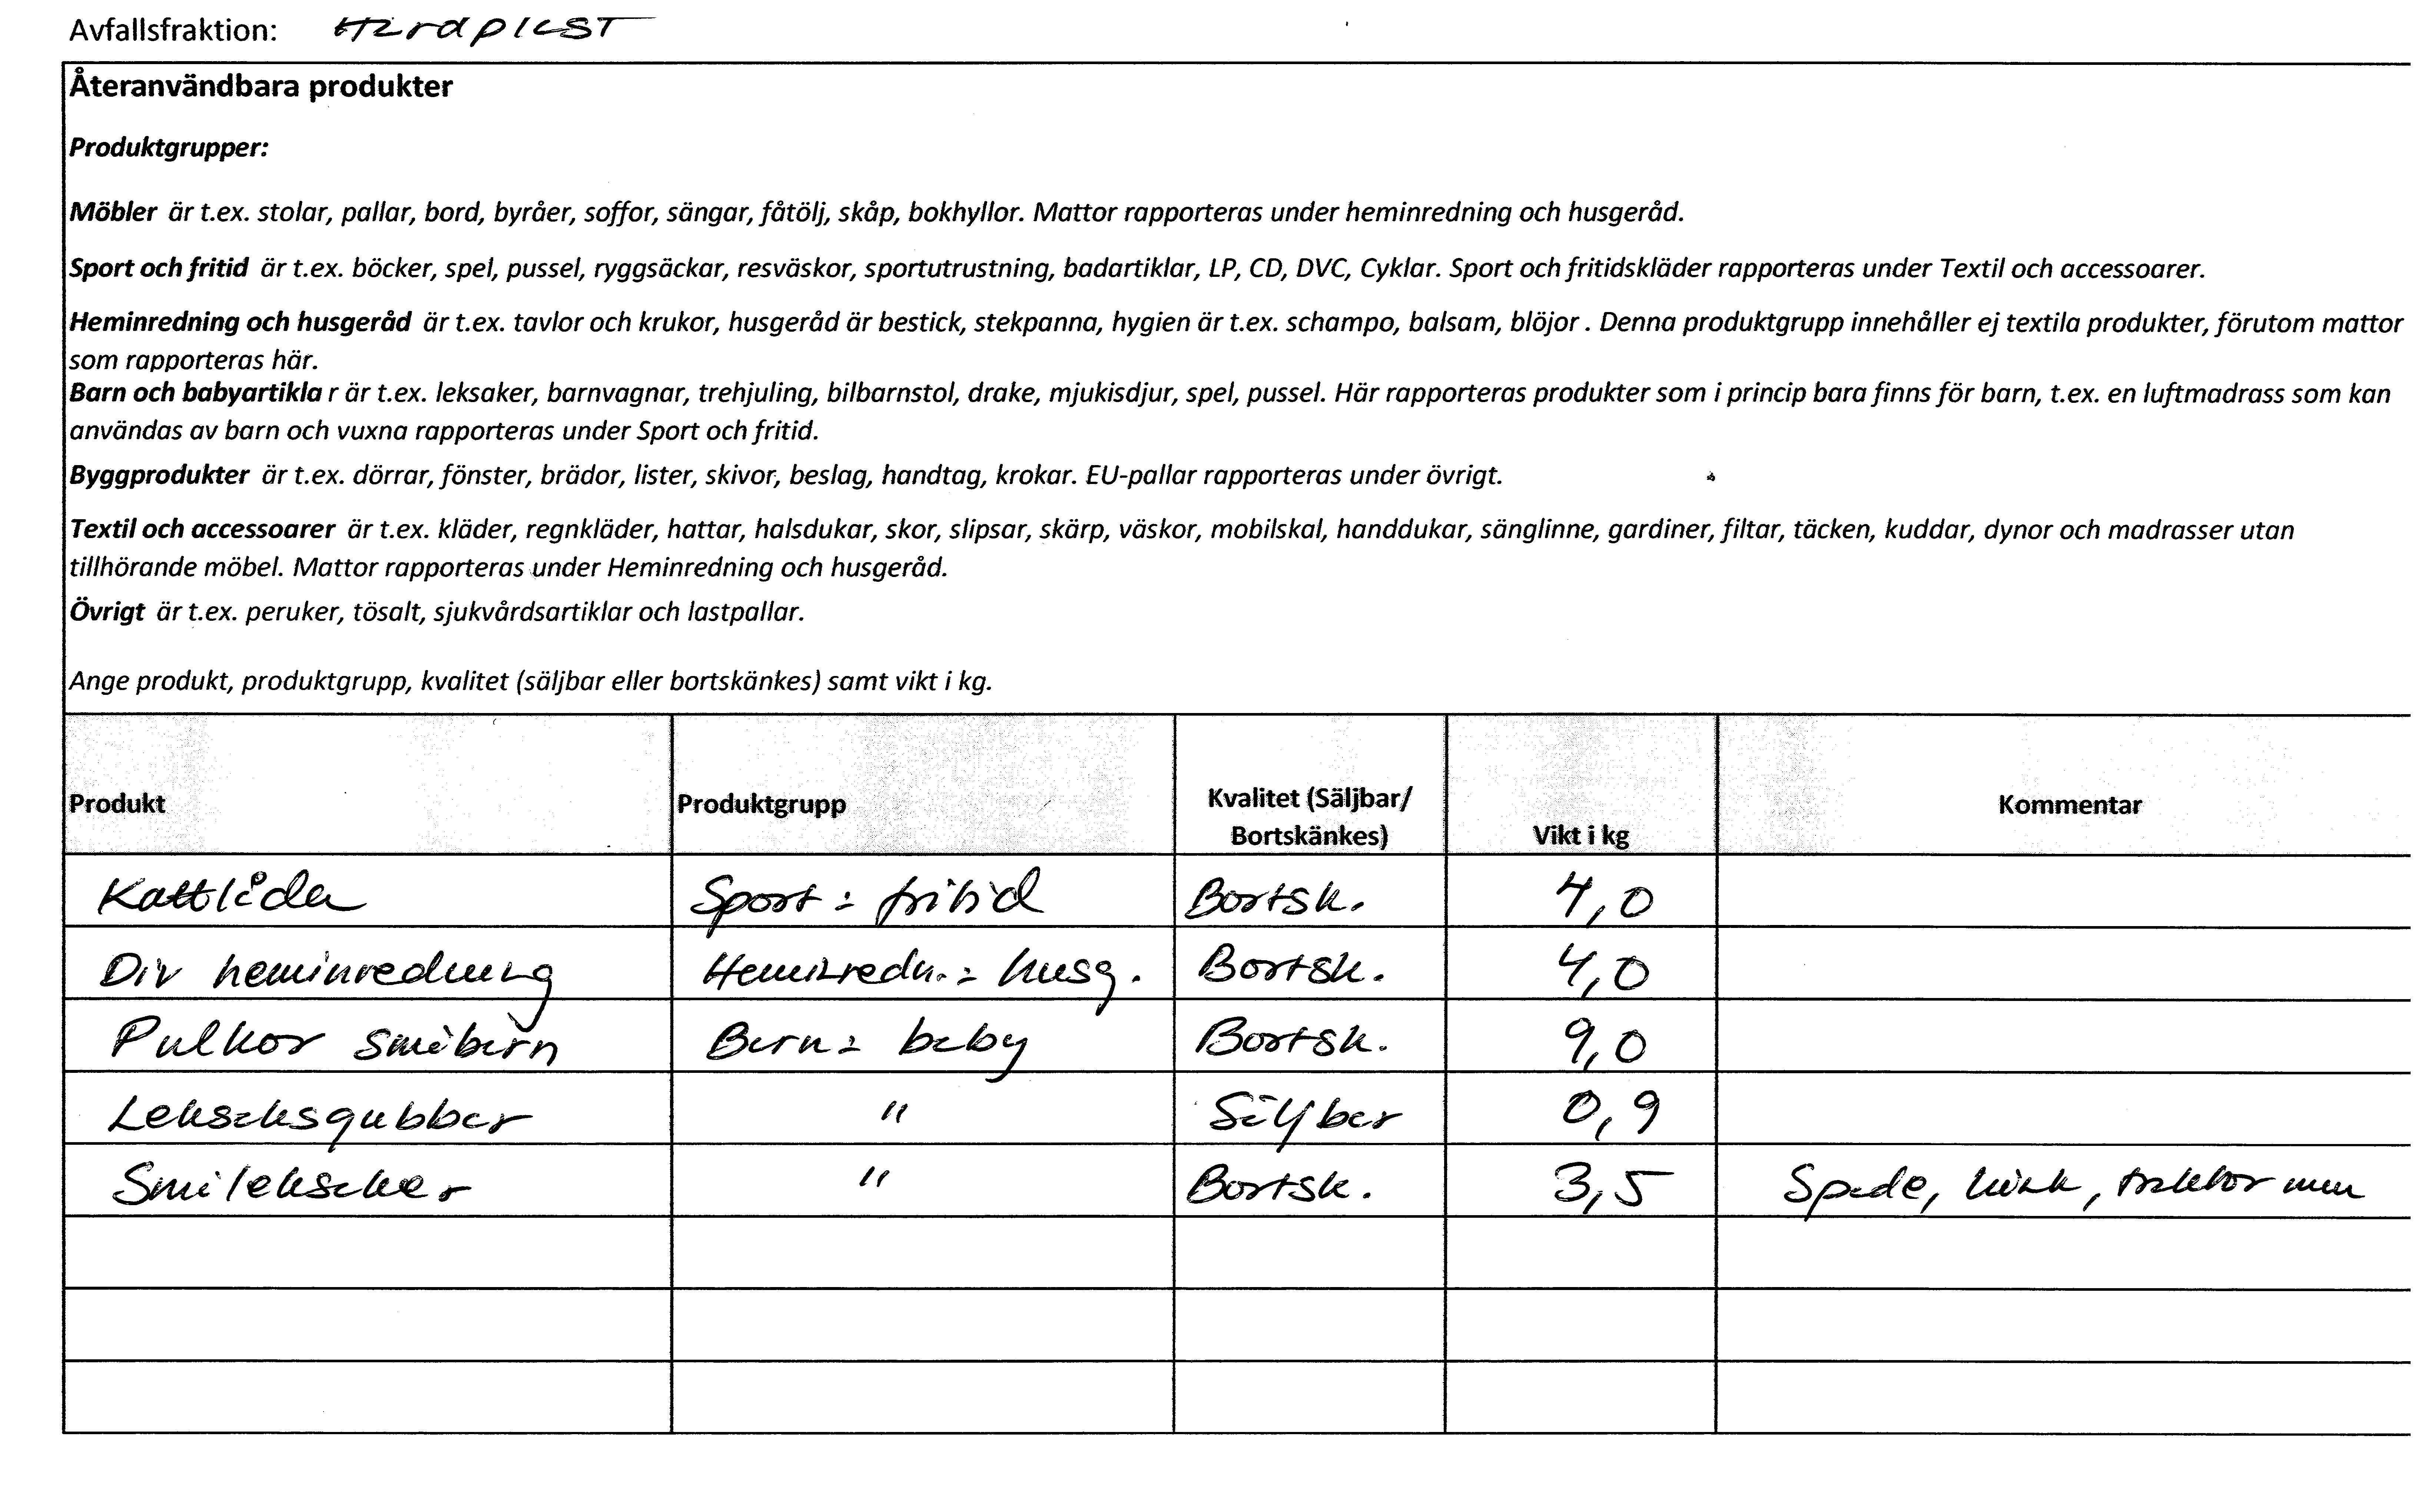 Avfallsfraktion: Hårdplast
Återanvändbara produkter
Produktgrupper:
Möbler är t.ex. stolar, pallar, bord, byråer, soffor, sängar, fåtölj, skåp, bokhyllor. Mattor rapporteras under heminredning och husgeråd.
Sport och fritid är t.ex. böcker, spel, pussel, ryggsäckar, resväskor, sportutrustning, badartiklar, LP, CD, DVC, Cyklar. Sport och fritidskläder rapporteras under Textil och accessoarer.
Heminredning och husgeråd är t.ex. tavlor och krukor, husgeråd är bestick, stekpanna, hygien är t.ex. schampo, balsam, blöjor . Denna produktgrupp innehåller ej textila produkter, förutom mattor
som rapporteras här.
Barn och babyartikla r är t.ex. leksaker, barnvagnar, trehjuling, bilbarnstol, drake, mjukisdjur, spel, pussel. Här rapporteras produkter som i princip bara finns för barn, t.ex. en luftmadrass som kan
användas av barn och vuxna rapporteras under Sport och fritid.
Byggprodukter är t.ex. dörrar, fönster, brädor, lister, skivor, beslag, handtag, krokar. EU-pallar rapporteras under övrigt.
Textil och accessoarer är t.ex. kläder, regnkläder, hattar, halsdukar, skor, slipsar, skärp, väskor, mobilskal, handdukar, sänglinne, gardiner, filtar, täcken, kuddar, dynor och madrasser utan
tillhörande möbel. Mattor rapporteras under Heminredning och husgeråd.
Övrigt är t.ex. peruker, tösalt, sjukvårdsartiklar och lastpallar.
Ange produkt, produktgrupp, kvalitet (säljbar eller bortskänkes) samt vikt i kg.
Produkt Produktgrupp Kvalitet (Säljbar/ Bortskänkes) Vikt i kg Kommentar
Kattlåda Sport & fritid Bortsk. 4,0
Div heminredning Heminredn. & husg. Bortsk. 4,0
Pulkor småbarn Barn & baby Bortsk. 9,0
Leksaksgubbar " Säljbar 0,9
Småleksaker " Bortsk. 3,5 Spade, hink, traktor mm